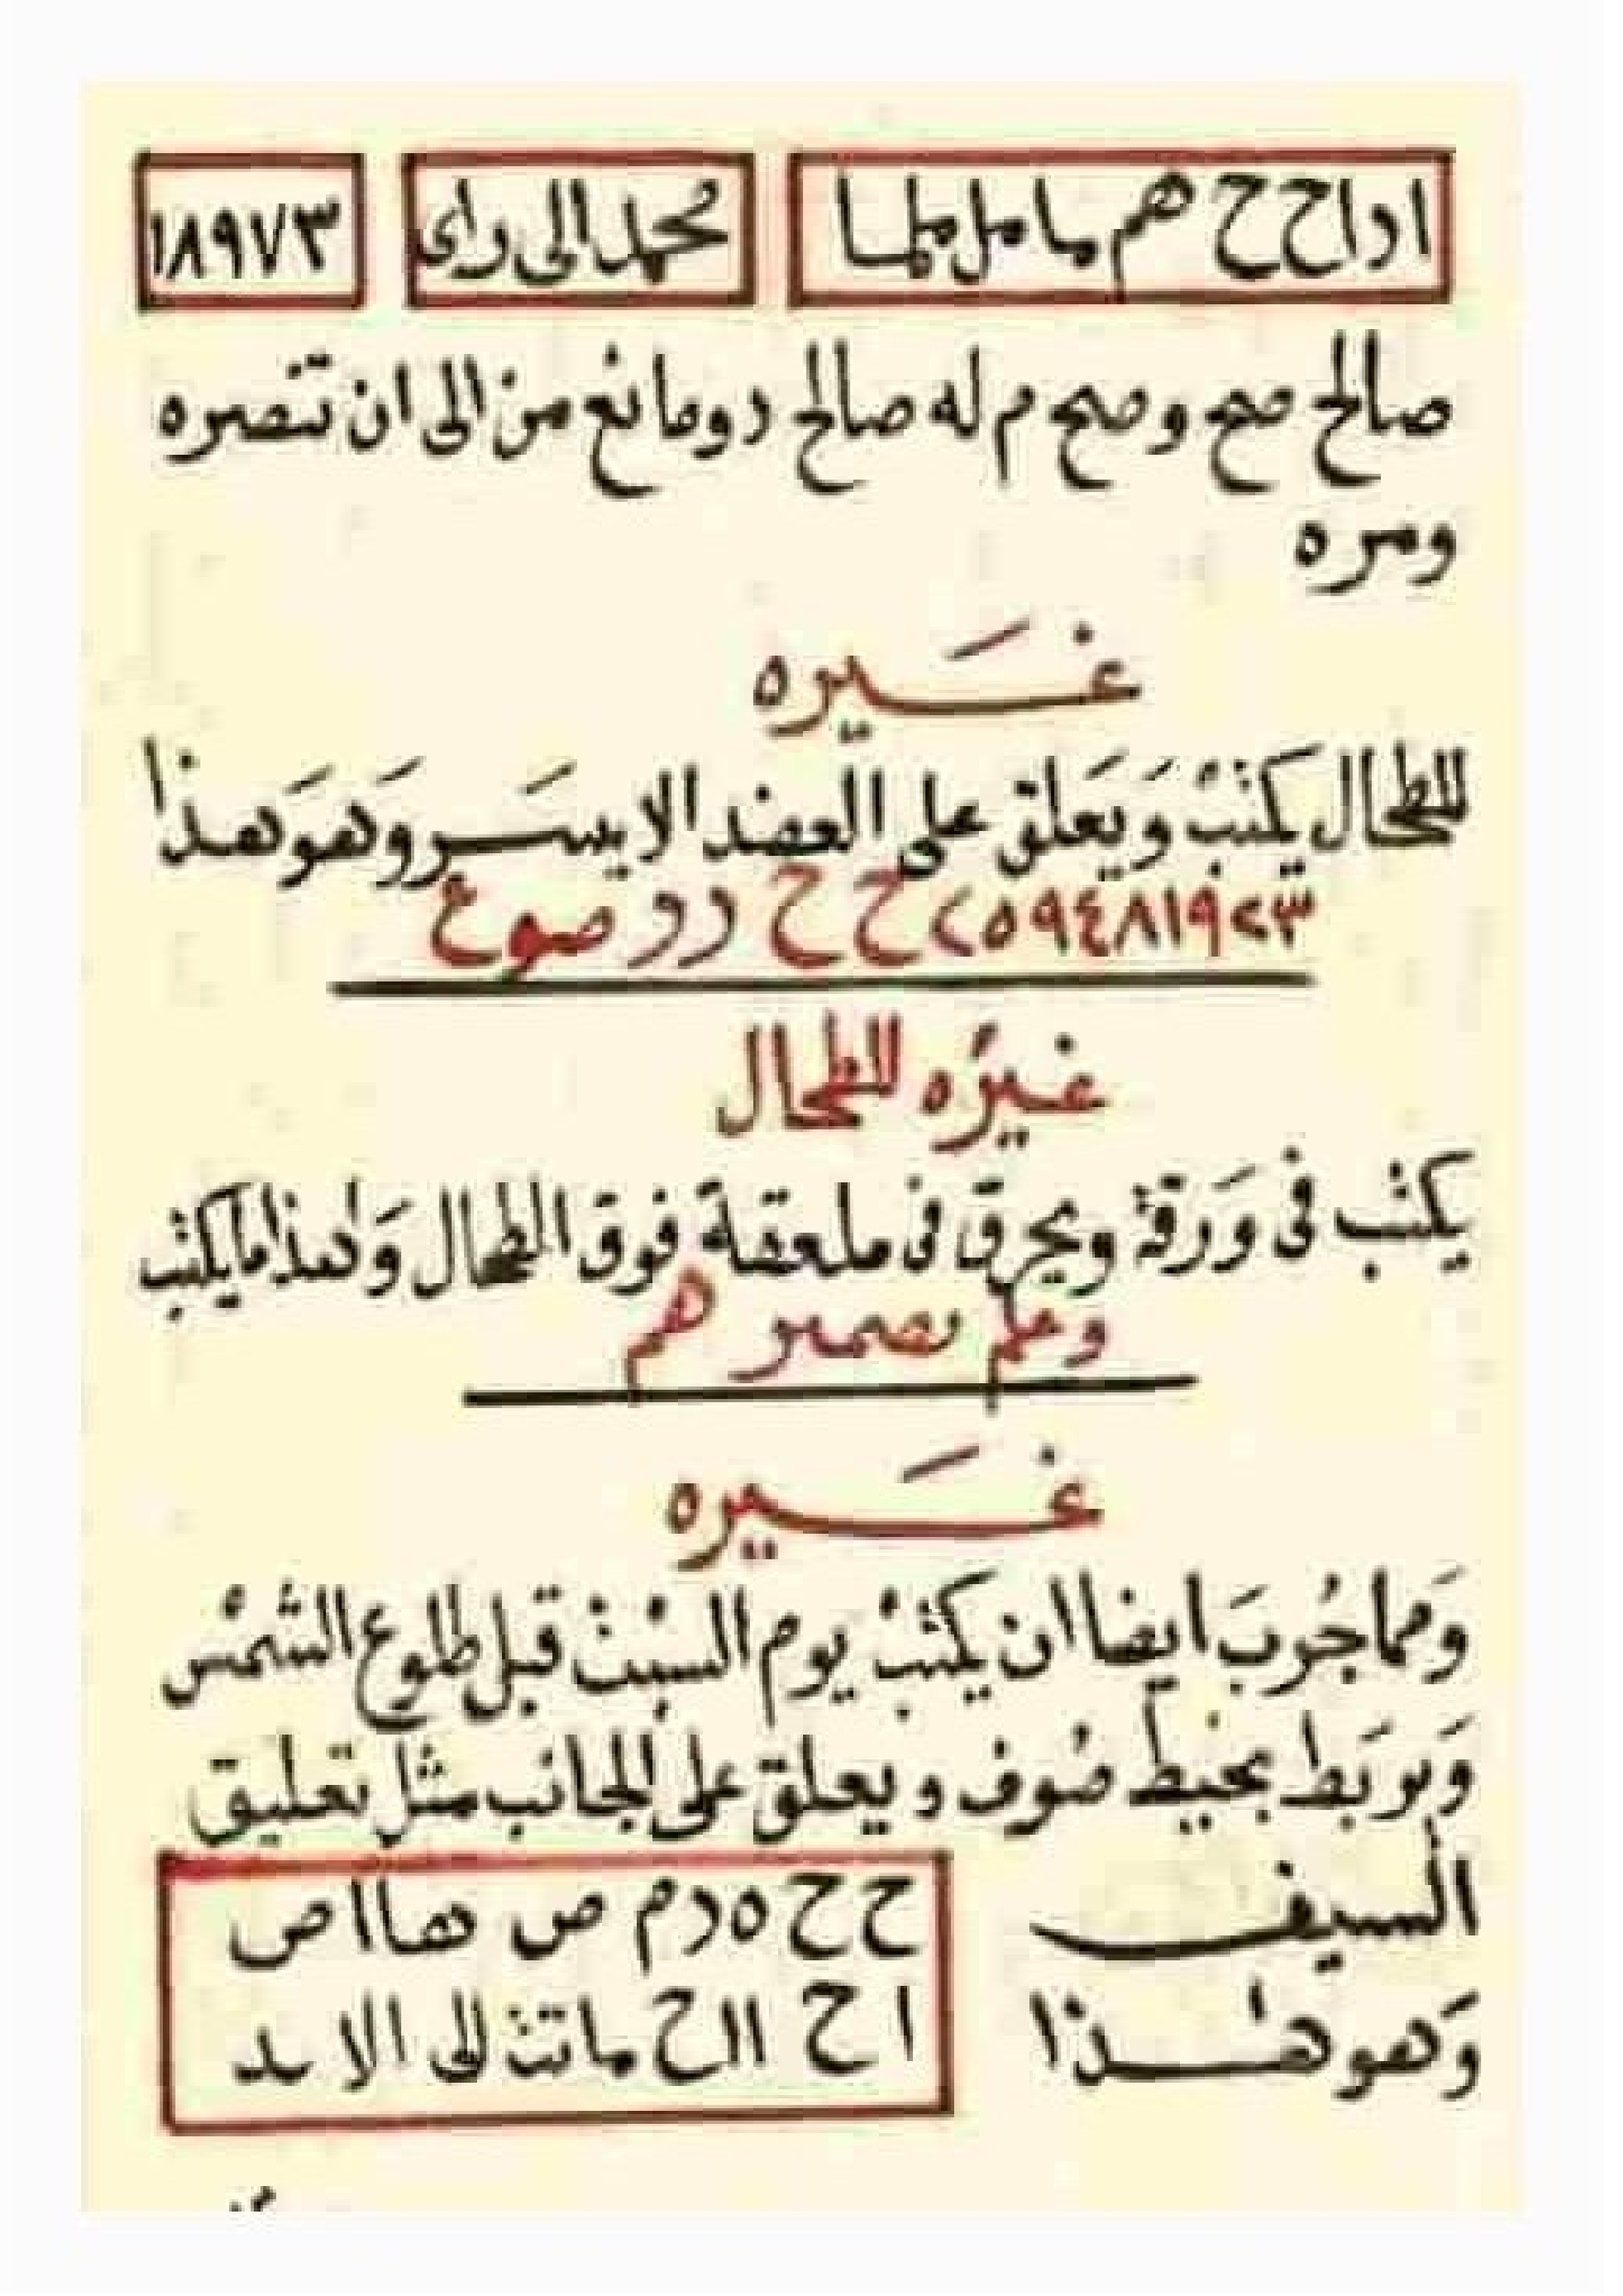 ا د ا ح ح هم ما مل ملما
محمد الى راى
١٨٩٧٣
صالح صح وصح م له صالح د وما نع من الى ان تنصره
ومره
غَيره
للطحال يكتبْ وَيَعلق على العضد الايسَر وَهوَ هذا
٣٢٩١٨٤٩٥٢ ح ح د د صوع
غيرُه للطحال
يكتب فى وَرقة ويحرق فى ملعقة فوق الطحال وَهذا ما يكتب
هم
غَيره
وَمما جُربَ ايضا ان يكتبْ يوم السبْت قبل طلوع الشمْس
وَيربَط بخيط صُوف ويعلق على الجانب مثل تعليق
السيف
وَهو هذا
ح ح ه د م ص ها ا ص
ا ح ا ا ح ما تت الى الا بد